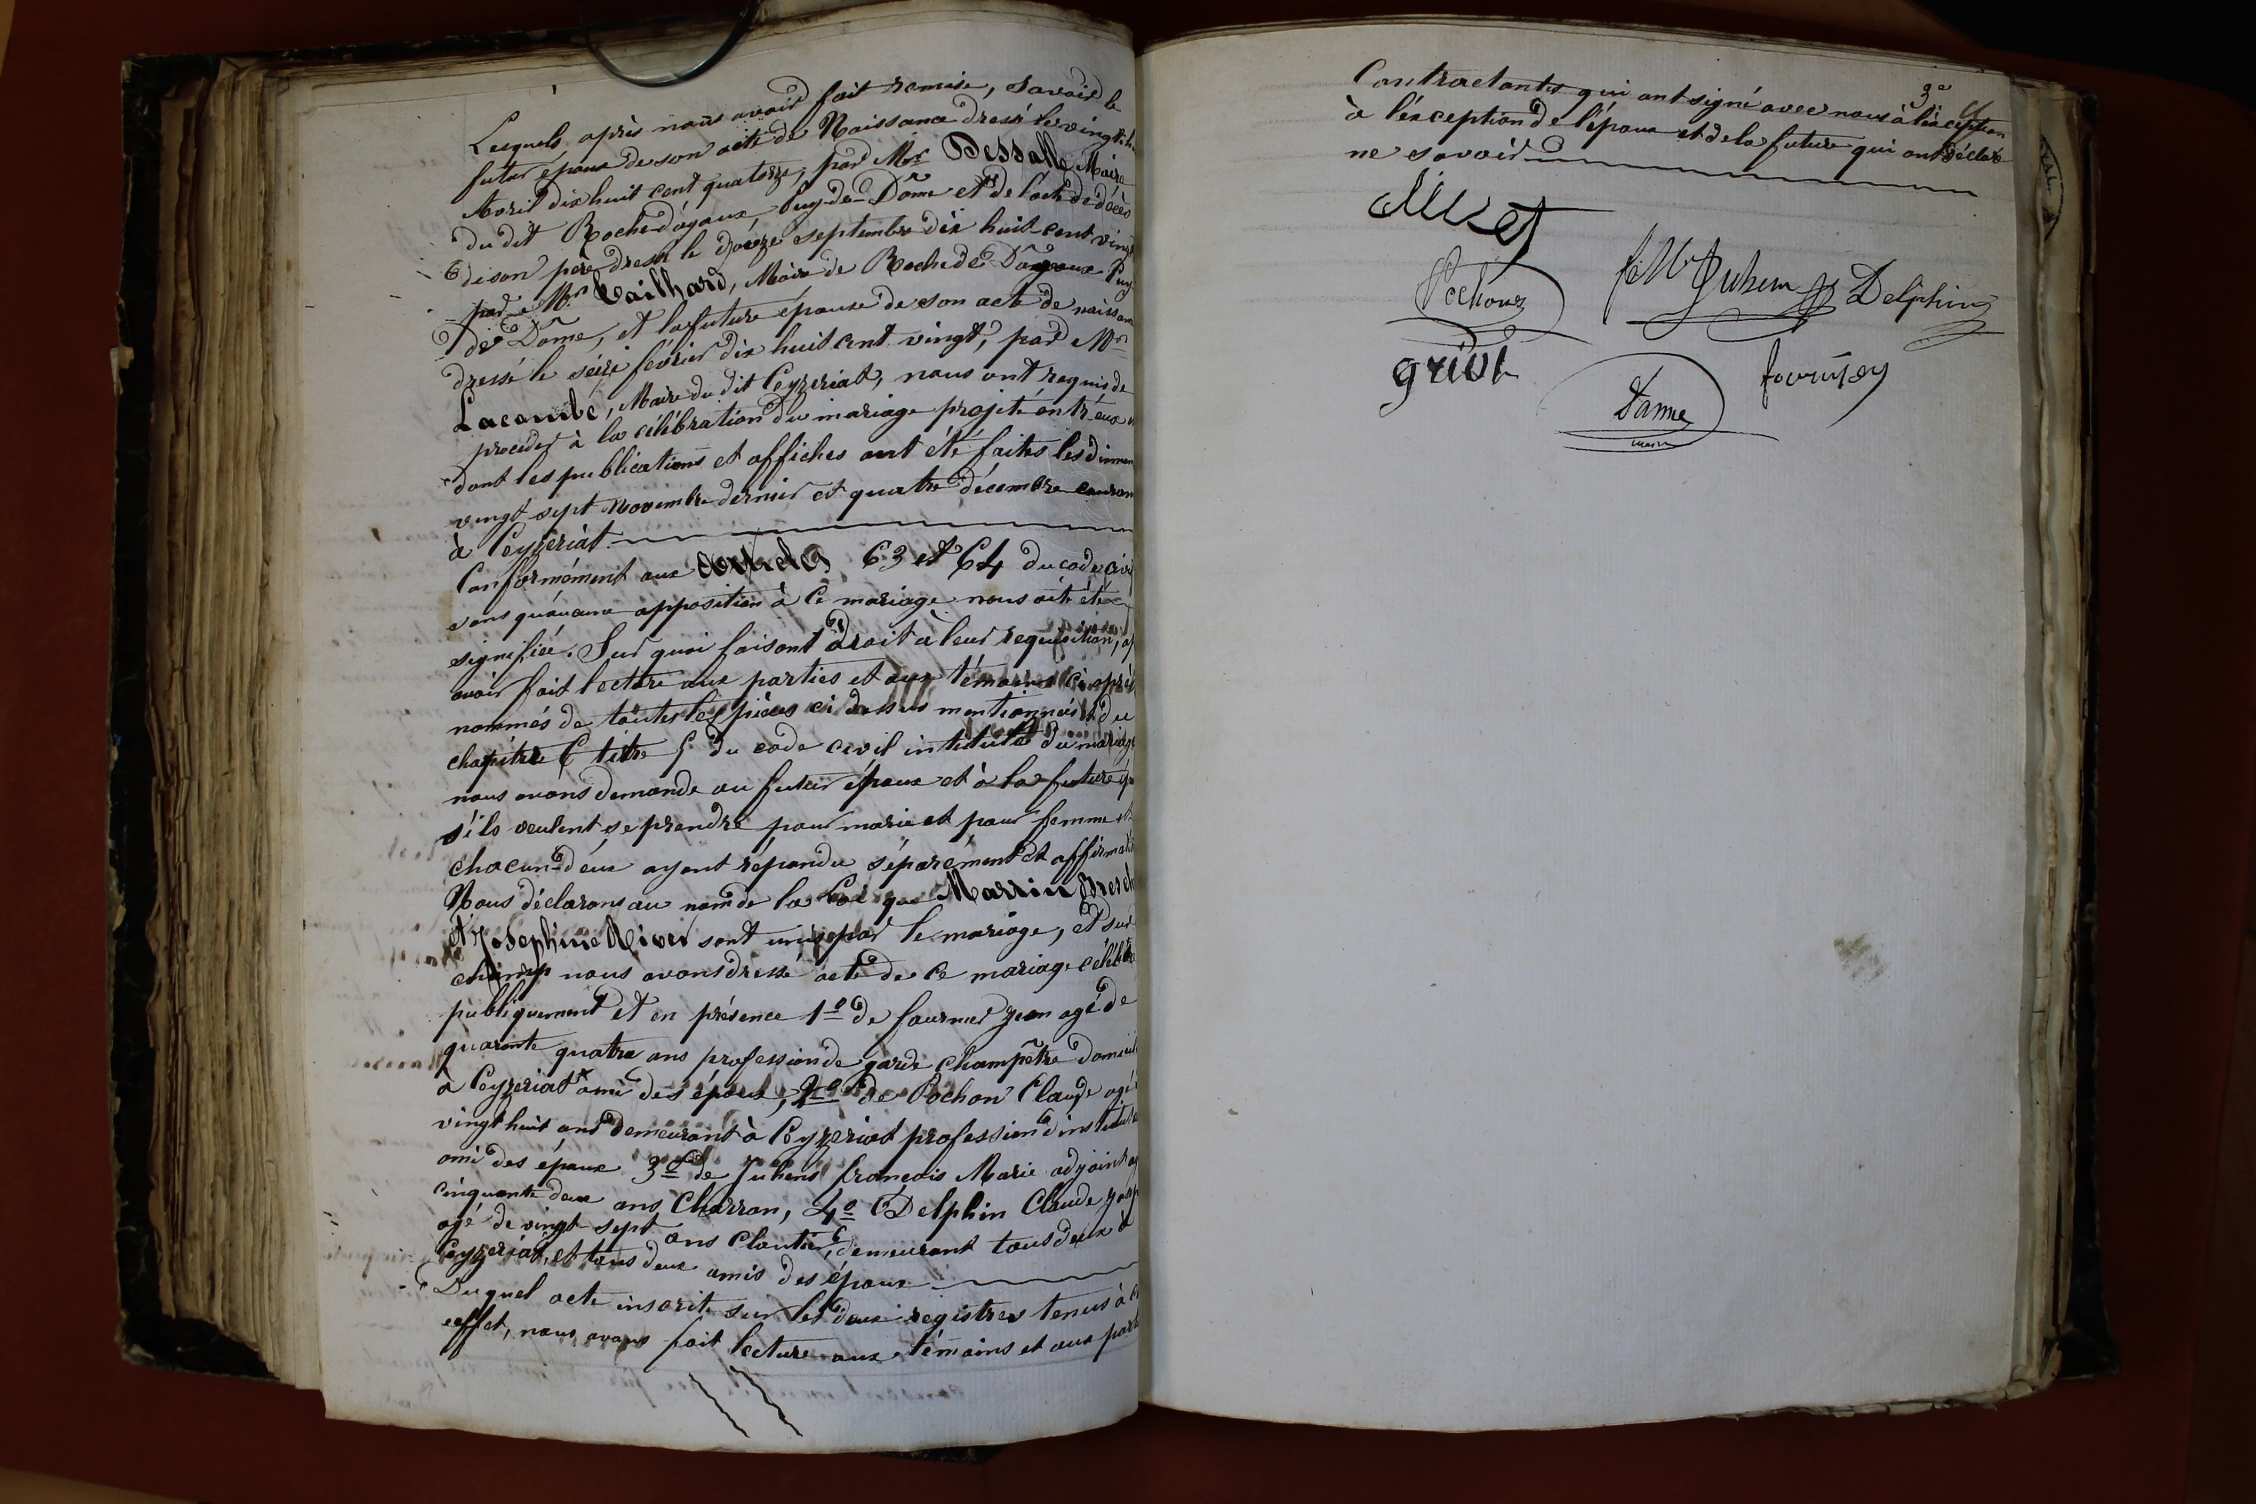 Lesquels après nous avoir fait remise, savoir le
futur époux de son acte de Naissance dressé le vingt
Avril dix huit cent quatorze, par Mr. Dessalle Maire
du dit Roche d'agoux, Puy-de-Dôme et de l'acte de décès
de son père dressé le douze septembre dix huit cent vingt
par Mr. Tailhard, Maire de Roche de Dagoux Puy
de Dôme, et la future épouse de son acte de naissan
dressé le seize février dix huit cent vingt, par Mr.
Lacombe, Maire du dit Ceyzeriat, nous ont requis de
procéder à la célébration du mariage projeté entr'eux
dont les publications et affiches ont été faites les diman
vingt sept Novembre dernier et quatre décembre couran
à Ceyzeriat.
Conformément aux articles 63 et 64 du code civ
sans qu'aucune opposition à ce mariage nous ait été
signifiée. Sur quoi faisant droit à leur requisition, a
avoir fait lecture aux parties et aux témoins ci après
nommés de toutes les pièces ci dessus mentionnées du
chapitre 6 titre 5 du code civil intitulé du mariage
nous avons demandé au futur époux et à la future ép
s'ils veulent se prendre pour mari et pour femme
chacun d'eux ayant répondu séparément et affirmati
Nous déclarons au nom de la Loi que Marrien
et Josephine Nivet sont unis par le mariage, et sur
champ nous avons dressé acte de ce mariage célébré
publiquement et en présence 1o de fournier Jean agé de
quarante quatre ans profession de garde champêtre domicili
à Ceyzeriat ami des époux, 2o de Pochon Claude agé
vingt huit ans demeurant à Ceyzeriat profession d'institute
ami des époux 3o de Juhem françois Marie adjoint ag
cinquante deux ans Charron, 4o Delphin Claude
agé de vingt sept ans Cloutier, demeurant tous deux à
Ceyzeriat, et tous deux amis des époux
Duquel acte inscrit sur les deux registres tenus à c
effet, nous avons fait lecture aux témoins et aux parti
Contractantes qui ont signé avec nous à l'exception
à l'exception de l'époux et de la future qui ont déclaré
ne savoir
Nivet
Pochon
f M Juhem
Delphin
griot
fournier
Maire